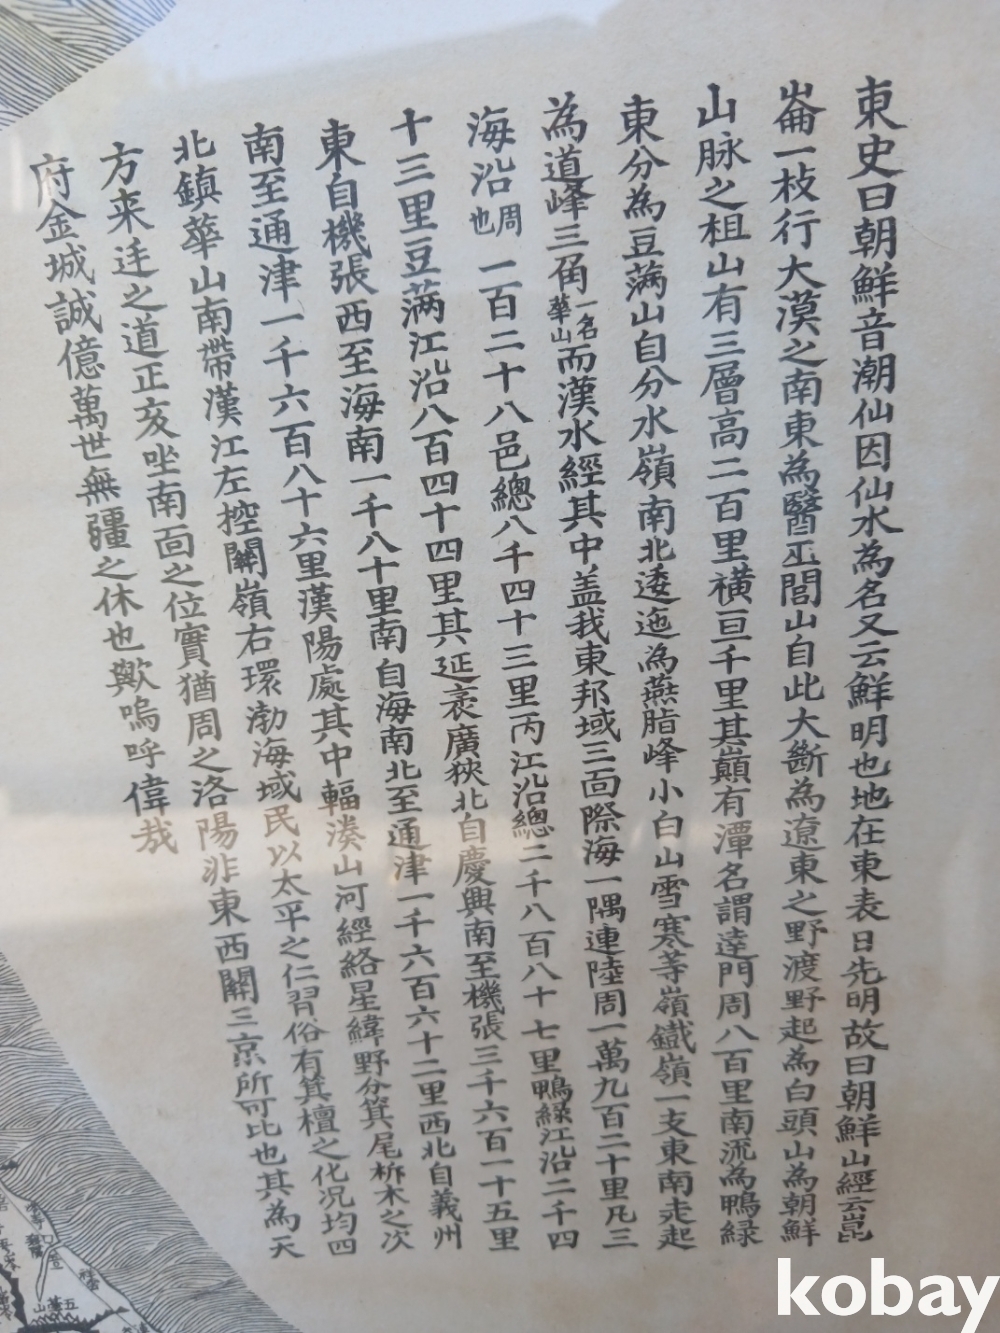 東史曰朝鮮音潮仙因仙水為名又云鮮明也地在東表日先明故曰朝鮮山經云崑
崙一枝行大漠之南東為醫巫閭山自此大斷為遼東之野渡野起為白頭山為朝鮮
山脉之祖山有三層高二百里横亘千里其巔有潭名謂達門周八百里南流為鴨緑
東分為豆滿山自分水嶺南北逶迤為燕脂峰小白山雪寒等嶺鐵嶺一支東南走起
為道峰三角一名華山而漢水經其中盖我東邦域三面際海一隅連陸周一萬九百二十里凡三
海沿周也一百二十八邑總八千四十三里丙江沿總二千八百八十七里鴨緑江沿二千四
十三里豆滿江沿八百四十四里其延袤廣狹北自慶興南至機張三千六百一十五里
東自機張西至海南一千八十里南自海南北至通津一千六百六十二里西北自義州
南至通津一千六百八十六里漢陽處其中輻湊山河經絡星緯野分箕尾析木之次
北鎮華山南帶漢江左控關嶺右環渤海域民以太平之仁習俗有箕檀之化况均四
方来迋之道正亥坐南面之位實猶周之洛陽非東西關三京所可比也其為天
府金城誠億萬世無疆之休也歟嗚呼偉哉
五
山
kobay